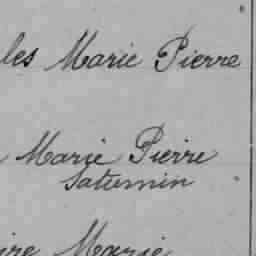 les Marie Pierre
Marie Pierre
Saturnin
ire Marie